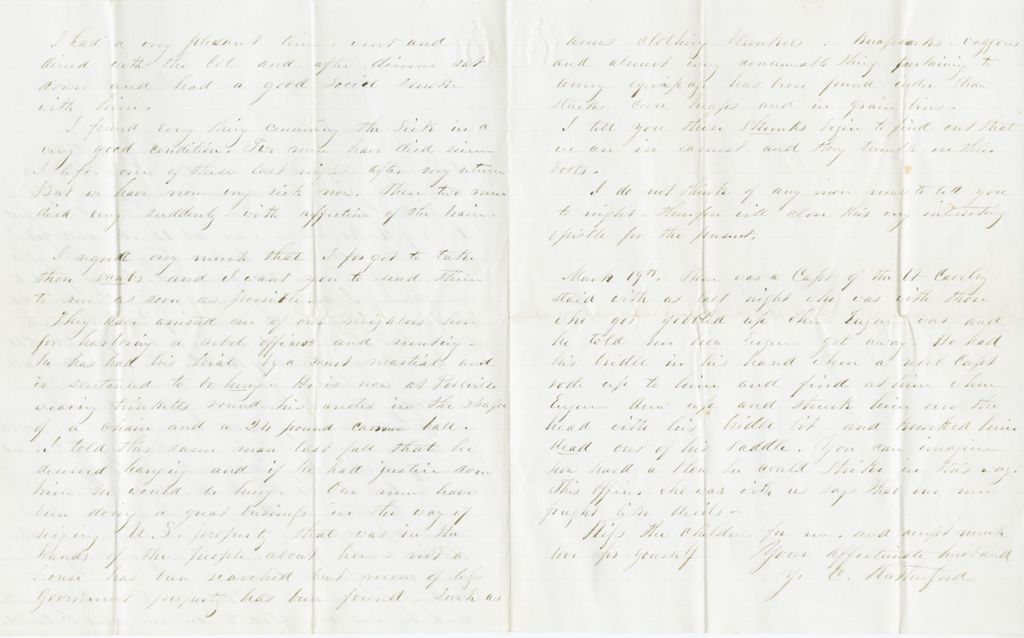 I had a very pleasant time. went and
dined with the Col and after dinner sat
down and had a good social smoke
with him.
I found every thing concerning the Sick in a
very good condition. Two men have died since
I left one of these last night after my return
But we have none very sick now. These two men
died very suddenly with affection of the brain.
I regret very much that I forgot to take
those and I want you to send them
to me as soon as possible.
They have arrested one of our neighbors here
for harboring a rebel officer and
He has had his trial by a court martial and
is sentenced to be hung. He is now at
wearing trinketts round his ancles in the shape
of a chain and a 24 pound cannon ball.
I told this same man last fall that he
deserved hanging and if he had justice done
him he would be hung. Our men have
been doing a great business in the way of
U.S. property that was in the
hands of the people about here. not a
house has been searched but more or less
government property has been found. Such as
arms clothing blankets. Knapsacks. waggons
and almost any conceivable thing pertaining to
army equipage has been found under Straw
stacks corn heaps and in grain bins.
I tell you these Skunks begin to find out that
we are in earnest and they tremble in their
boots.
I do not think of any more news to tell you
to night. therefore will close this very interesting
epistle for the present.
March 19th. There was a Capt of the Vt Cavalry
staid with us last night who was with those
who got gobbled up when Eugene was and
he told me how Eugene got away. He had
his bridle in his hand when a rebel Capt
rode up to him and fired at him when
Eugene drew up and struck him over the
head with his bridle bit and knocked him
dead out of his saddle. You can imagine
how hard a blow he could strike in this way.
This officer who was with us says that our men
fought like devils.
Kiss the children for me. and accept much
love for yourself Your affectionate husband
J. C. Rutherford